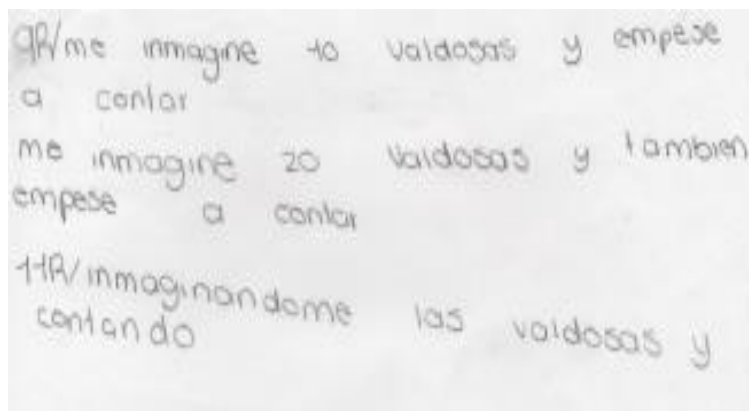 9R/me inmagine 10 valdosas y empese
a contar
me inmagine 20 valdosas y tambien
empese a contar
11R/inmaginandome las valdosas y
contando